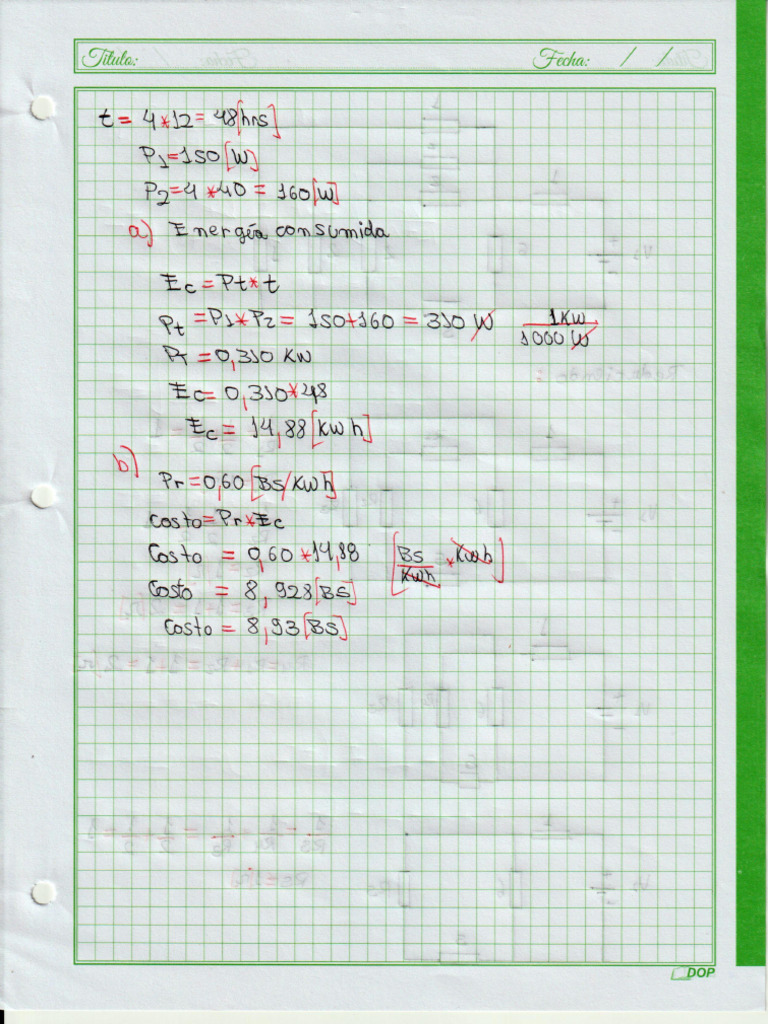 Título: Fecha: / /
t = 4 * 12 = 48 [hrs]
P1 = 150 [W]
P2 = 4 * 40 = 160 [W]
a) Energía consumida
Ec = Pt * t
Pt = P1 * P2 = 150 + 160 = 310 W 1 KW / 1000 W
PT = 0,310 KW
Ec = 0,310 * 48
Ec = 14,88 [Kwh]
b)
Pr = 0,60 [Bs/Kwh]
Costo = Pr * Ec
Costo = 0,60 * 14,88 [Bs / Kwh * Kwh]
Costo = 8,928 [BS]
Costo = 8,93 [BS]
DOP